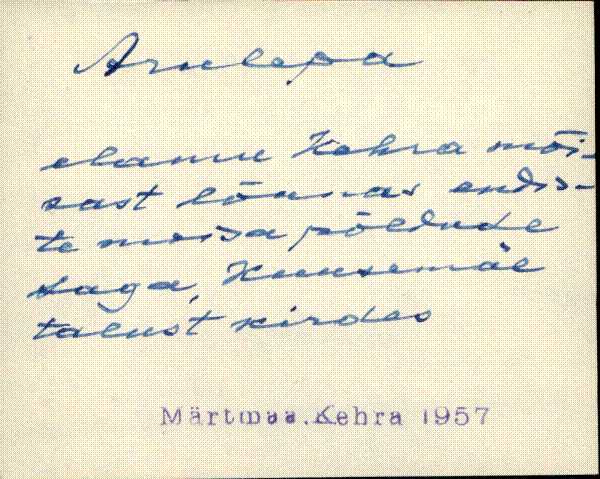 Arulepa
elamu Kehra mõi-
sast lõunas endis-
te moisa põldude
taga, Kuusemäe
talust kirdes
Märtmaa.Kehra 1957